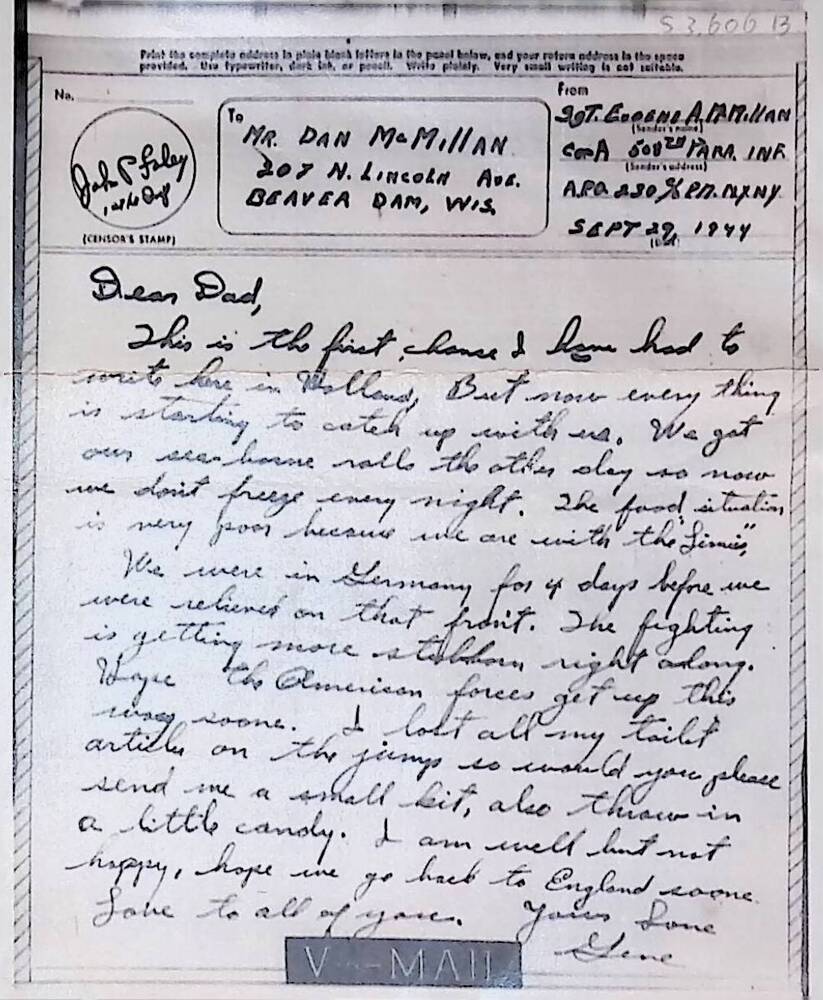 53,606 B
Print the complete address in plain block letters in the panel below, and your return address in the space
provided. Use typewriter, dark ink, or pencil. Write plainly. Very small writing is not suitable.
No.
John P Foley
(CENSOR'S STAMP)
To
MR. DAN McMillAN
207 N. LINCOLN AVE.
BEAVER DAM, WIS.
From
SGT. EUGENE A. McMillAN
(Sender's name)
Co A 508TH PARA. INF.
(Sender's address)
A.P.O. 230 % P.M. N.Y. N.Y.
SEPT 29, 1944
(Date)
Dear Dad,
This is the first chance I have had to
write here in Holland, But now every thing
is starting to catch up with us. We got
our sea-borne rolls the other day so now
we don't freeze every night. The food situation
is very poor because we are with the "Limies".
We were in Germany for 4 days before we
were relieved on that front. The fighting
is getting more stubborn right along.
Hope the American forces get up this
way soone. I lost all my toilet
articles on the jump so would you please
send me a small kit, also throw in
a little candy. I am well but not
happy, hope we go back to England soone.
Love to all of youse. Yours Sone
Gene
V--MAIL